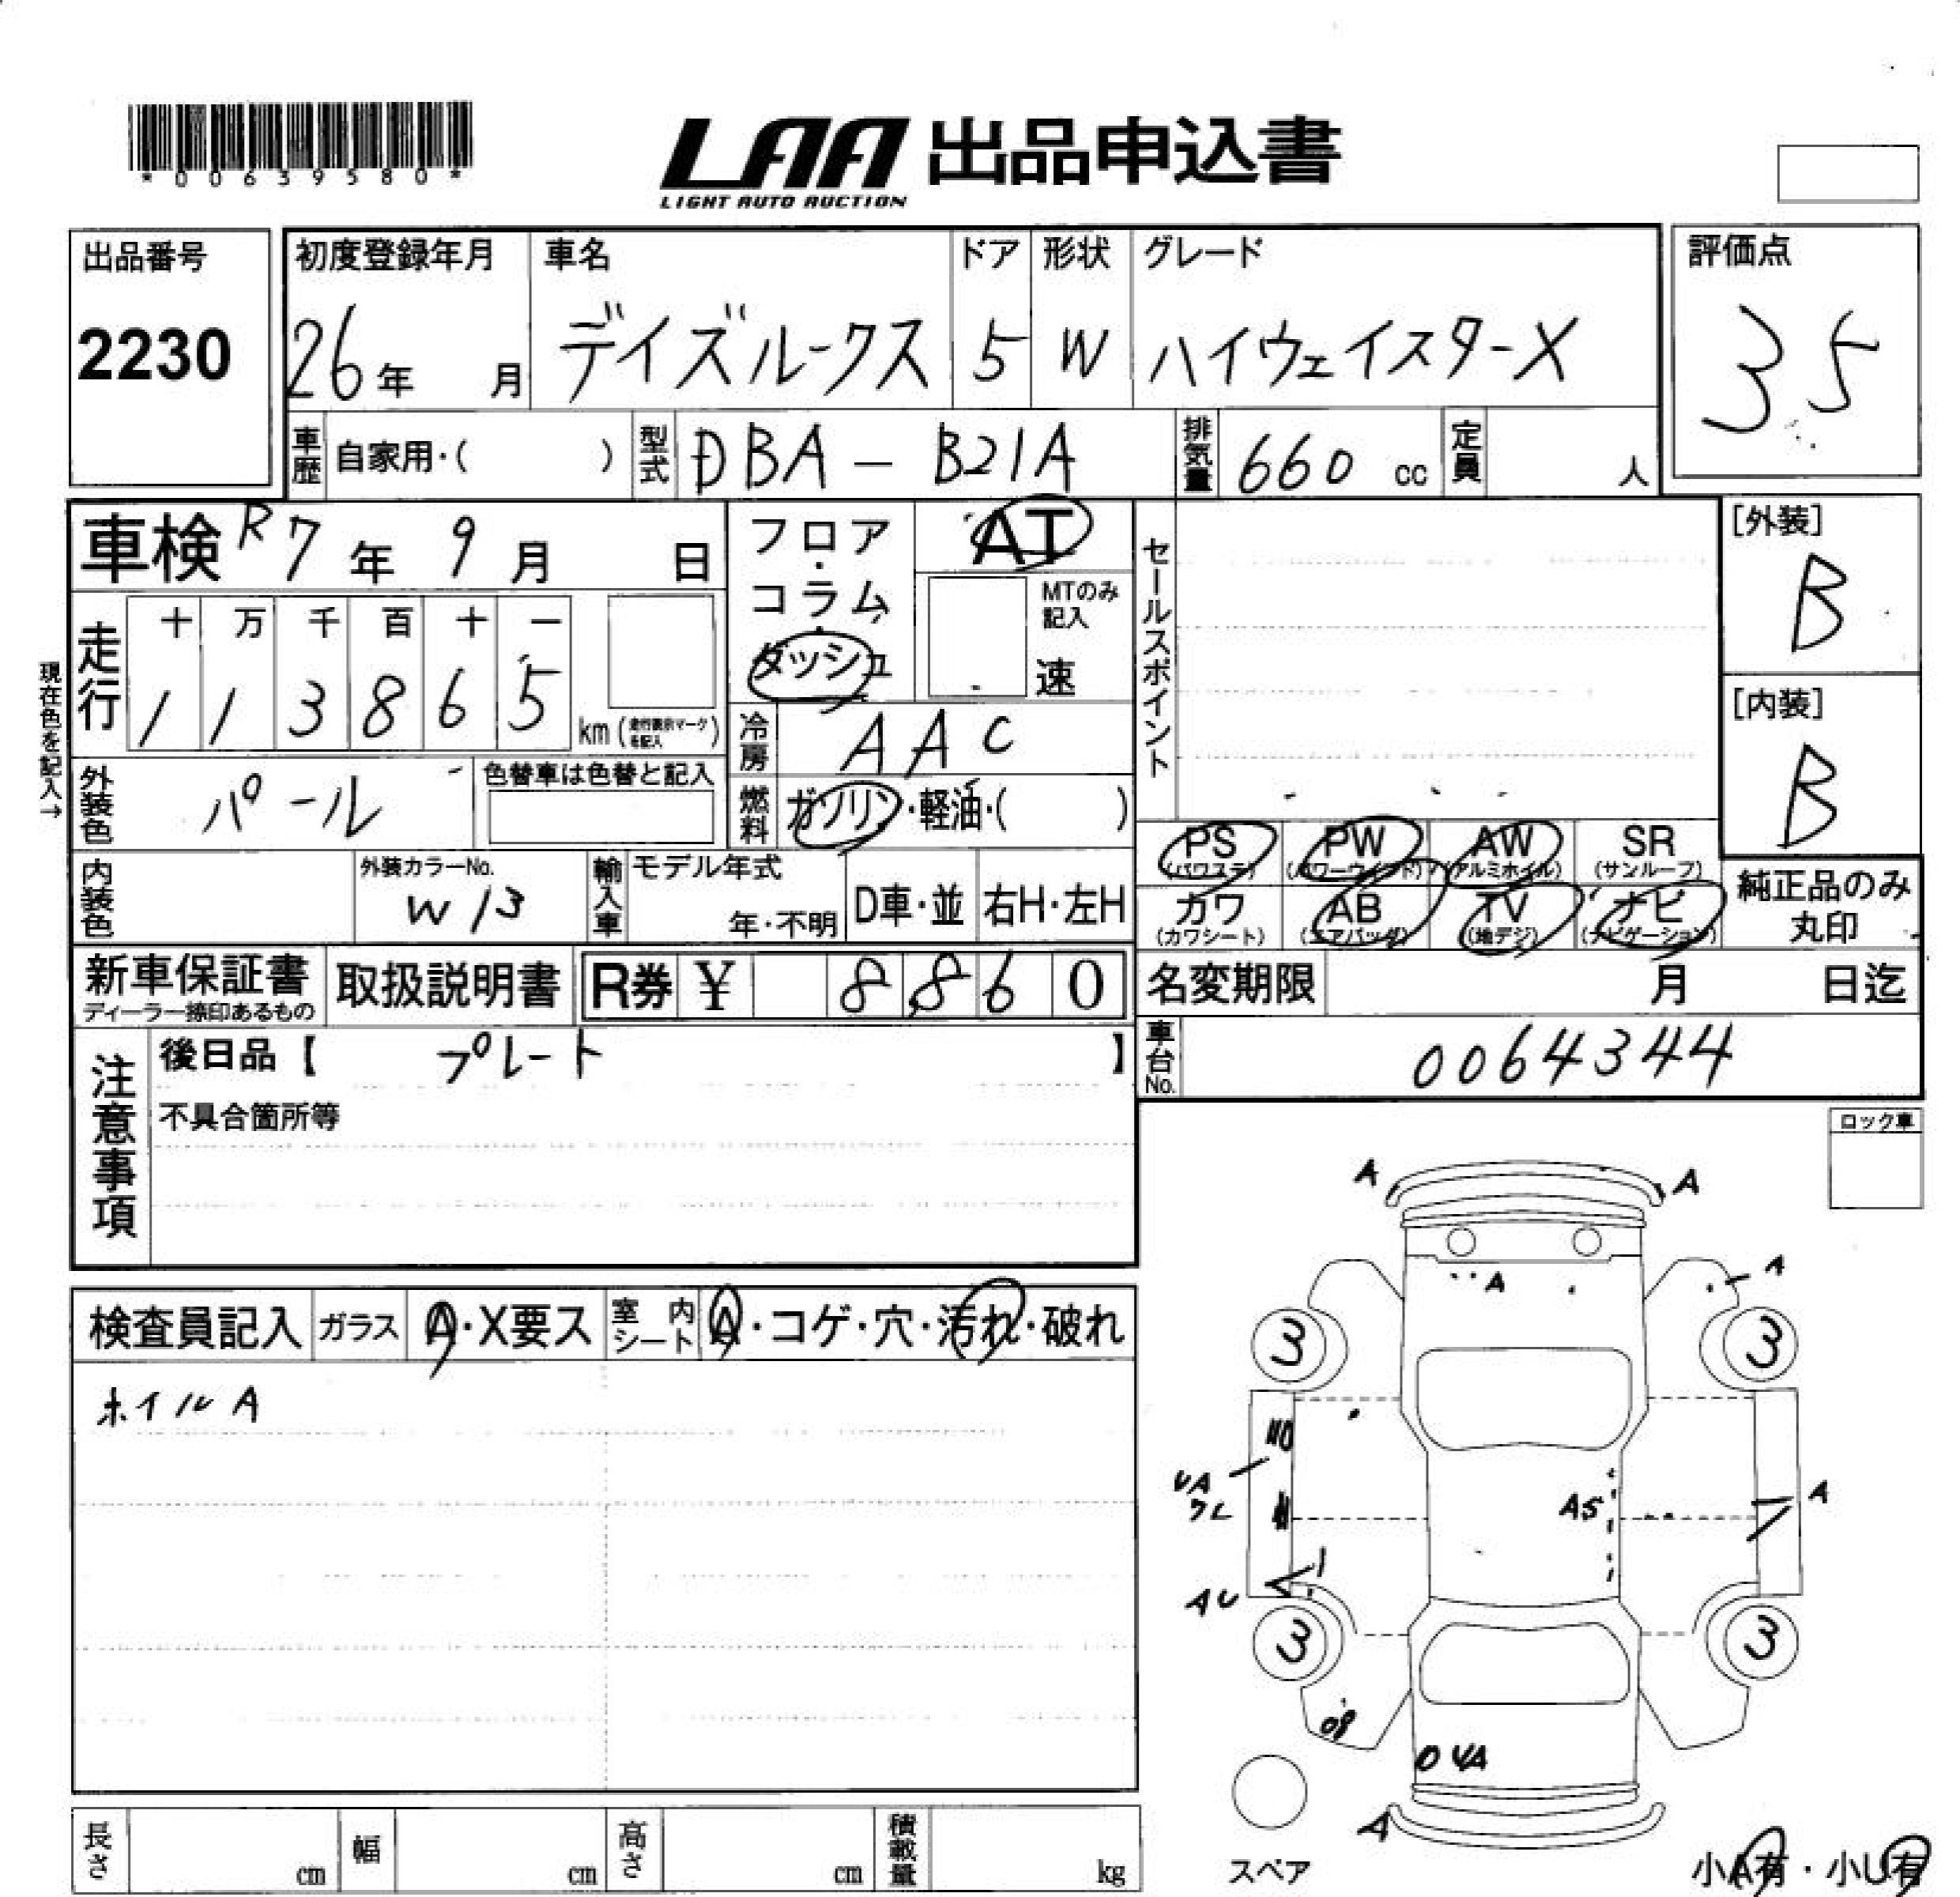 *00639580*
LAA 出品申込書
LIGHT AUTO AUCTION
出品番号 初度登録年月 車名 ドア 形状 グレード 評価点
2230 26年 月 デイズルークス 5 W ハイウェイスターX 35
車歴 自家用・( ) 型式 DBA - B21A 排気量 660 cc 定員 人
車検 R7年 9月 日 フロア・コラム・ダッシュ AT セールスポイント [外装]
B
MTのみ記入
速
現在色を記入→
走行 十 万 千 百 十 一
1 1 3 8 6 5 km (走行表示マークを記入)
冷房 AAC [内装]
B
外装色 パール 色替車は色替と記入 燃料 ガソリン・軽油・( )
PS PW AW SR
(パワステ) (パワーウインド) (アルミホイル) (サンルーフ)
内装色 外装カラーNo. 輸入車 モデル年式 カワ AB TV ナビ 純正品のみ
W13 年・不明 D車・並 右H・左H (カワシート) (エアバッグ) (地デジ) (ナビゲーション) 丸印
新車保証書 取扱説明書 R券 ¥ 8860 名変期限 月 日迄
ディーラー捺印あるもの
注意事項 後日品【 プレート 】 車台No. 0064344
不具合箇所等
ロック車
A A
A A
検査員記入 ガラス A・X要ス 室内シート A・コゲ・穴・汚れ・破れ
3 3
ホイルA
UA
クレ
AS A
AU
3 3
UA
A
長さ cm 幅 cm 高さ cm 積載量 kg スペア 小A有・小U有